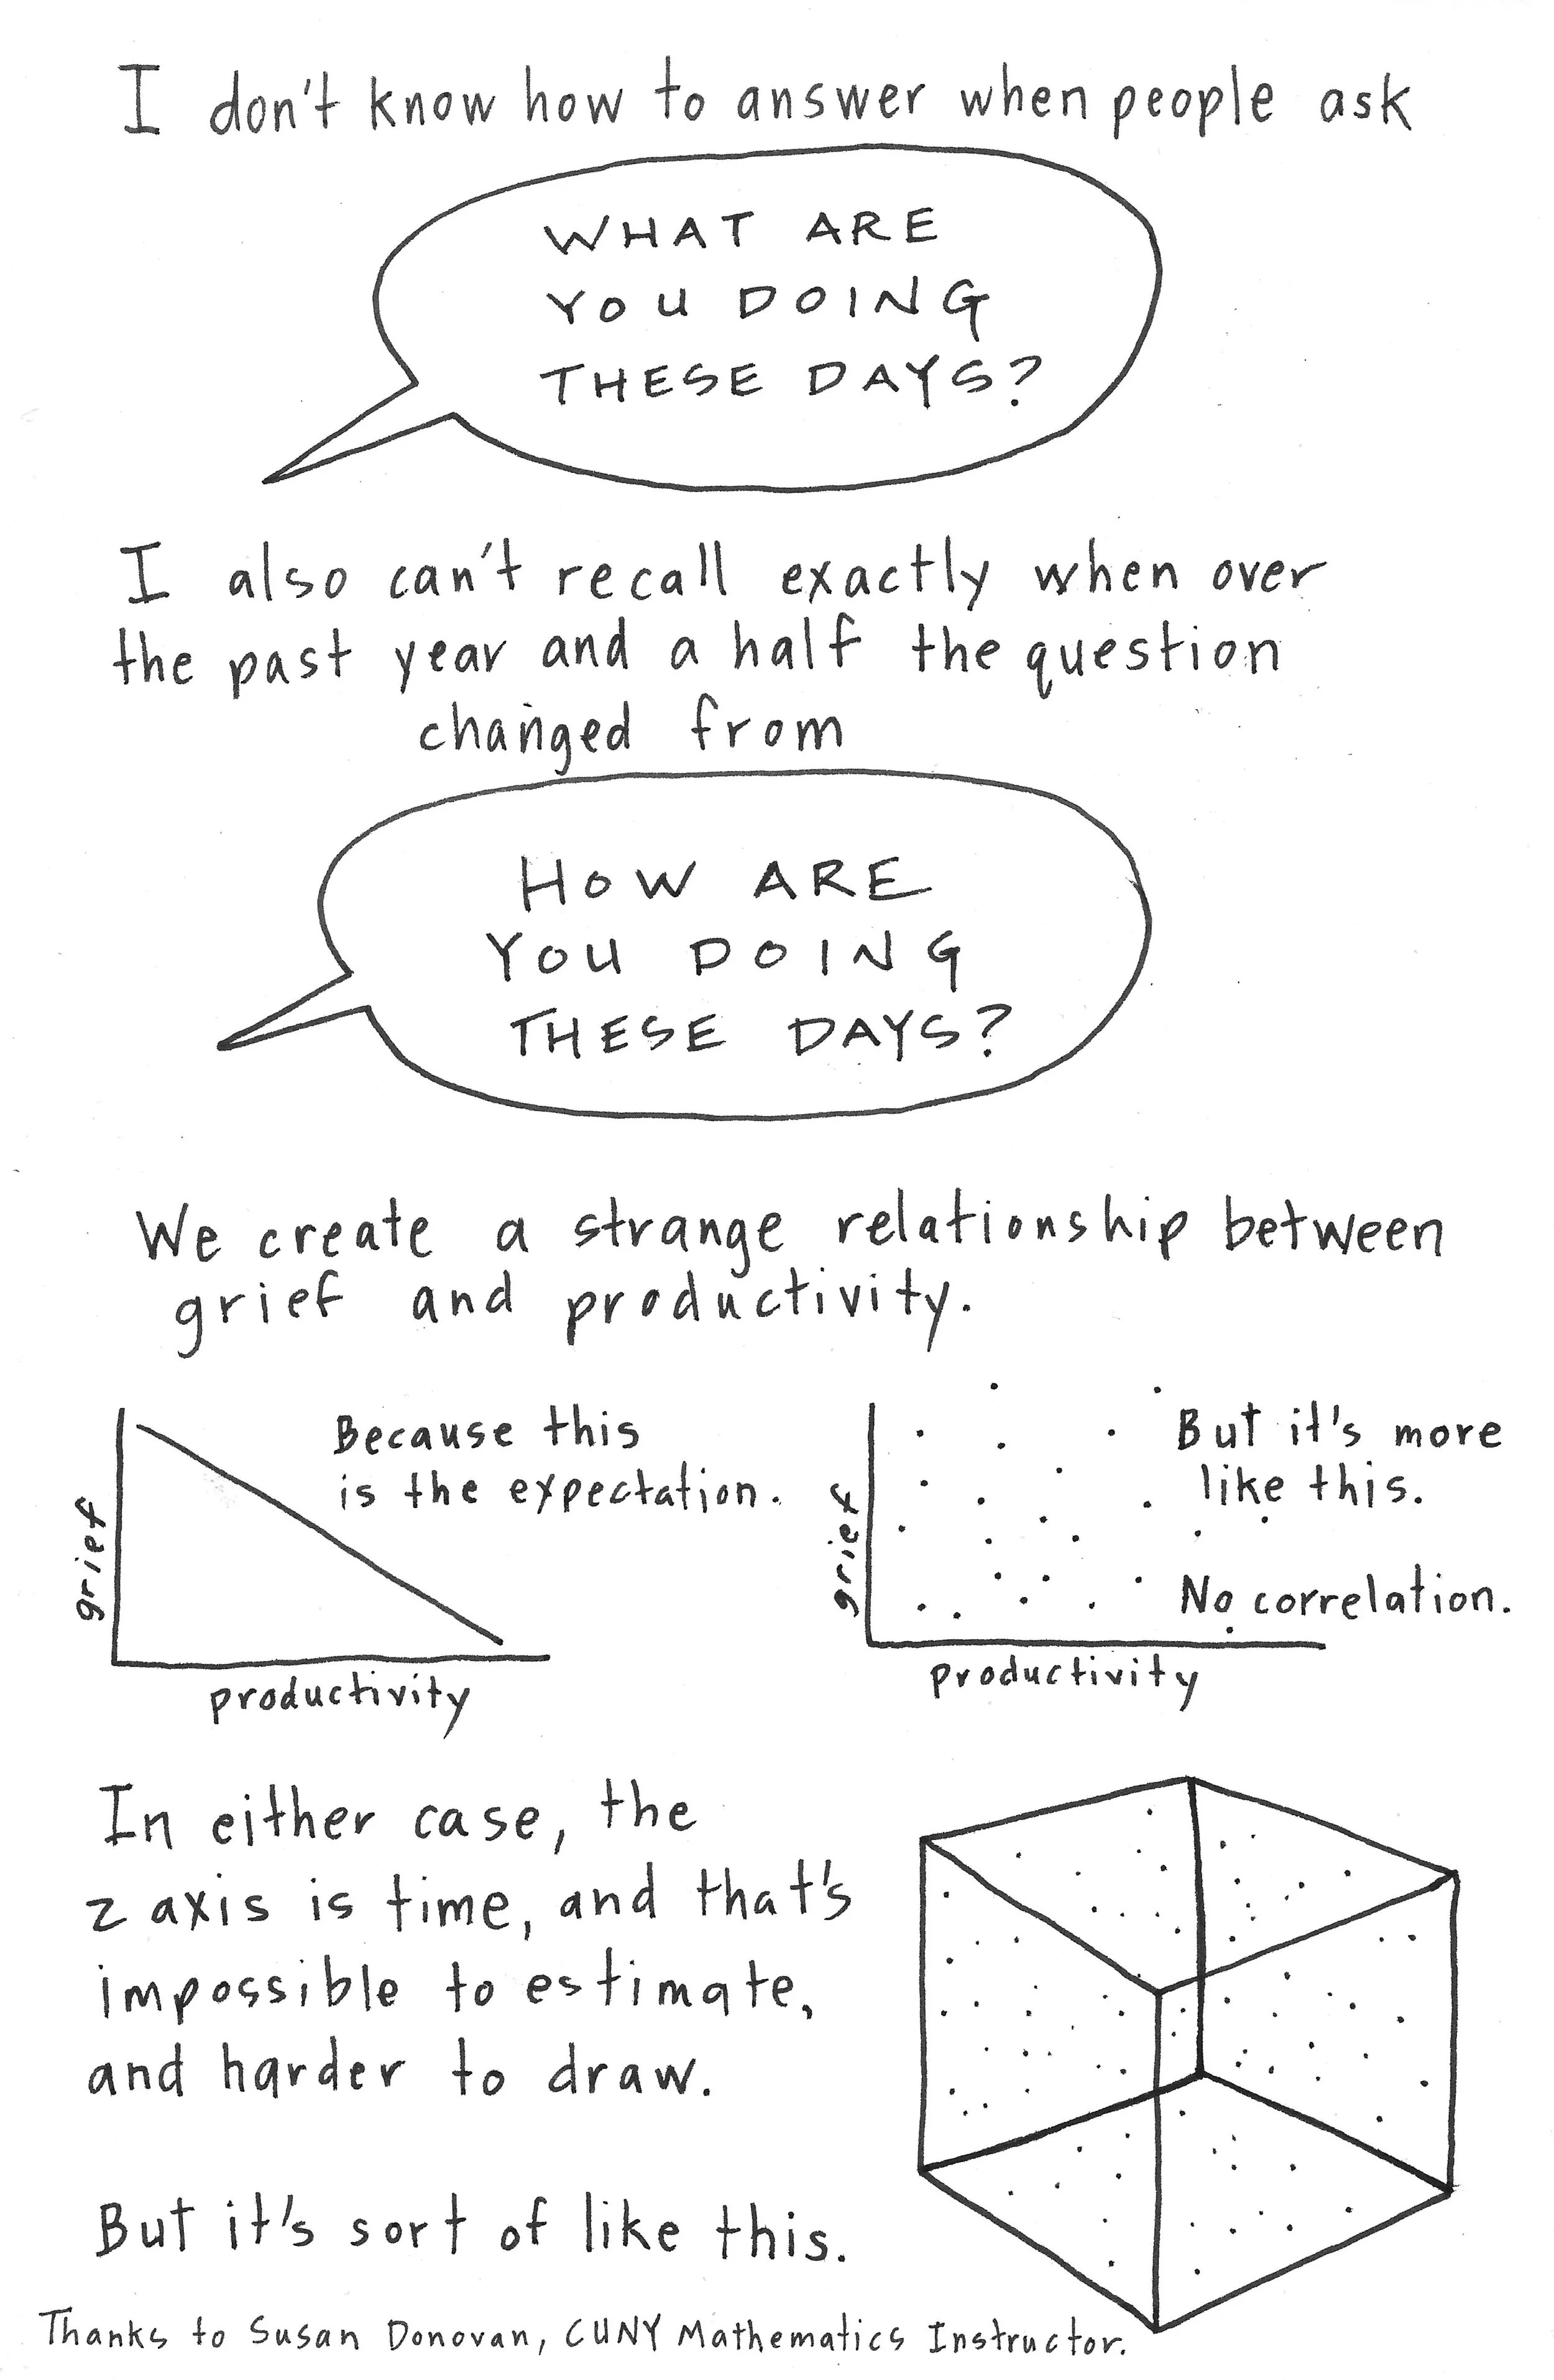 I don't know how to answer when people ask
WHAT ARE
YOU DOING
THESE DAYS?
I also can't recall exactly when over
the past year and a half the question
changed from
HOW ARE
YOU DOING
THESE DAYS?
We create a strange relationship between
grief and productivity.
Because this
is the expectation.
grief
productivity
But it's more
like this.
No correlation.
grief
productivity
In either case, the
z axis is time, and that's
impossible to estimate,
and harder to draw.
But it's sort of like this.
Thanks to Susan Donovan, CUNY Mathematics Instructor.